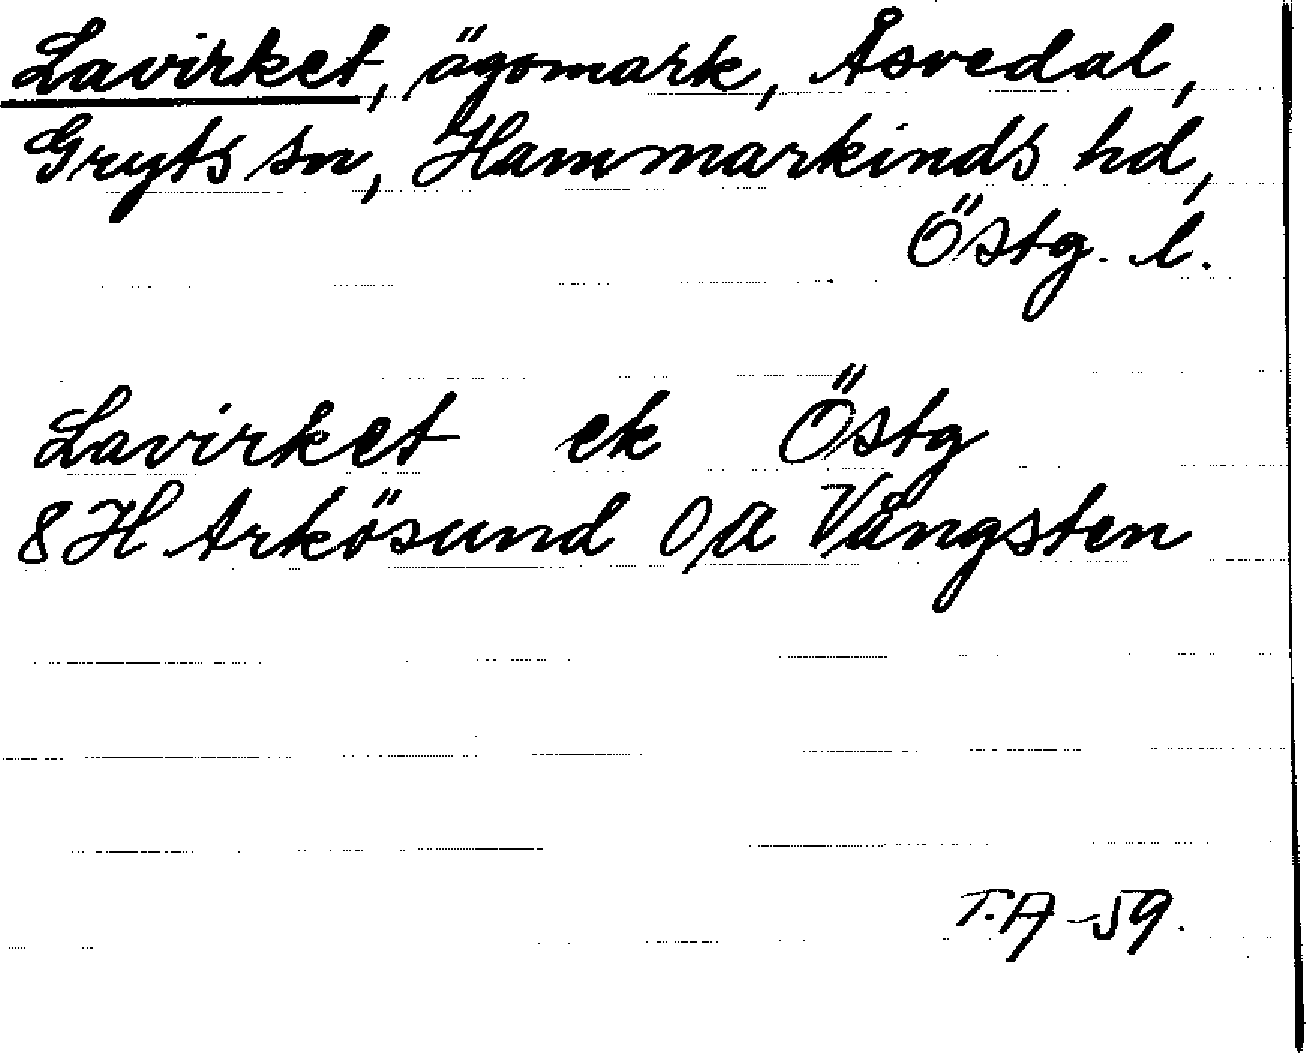 Lavirket, ägomark, Åsvedal,
Gryts sn, Hammarkinds hd,
Östg. l.
Lavirket ek Östg
8H Arkösund O/a Vångsten
T.A -59.